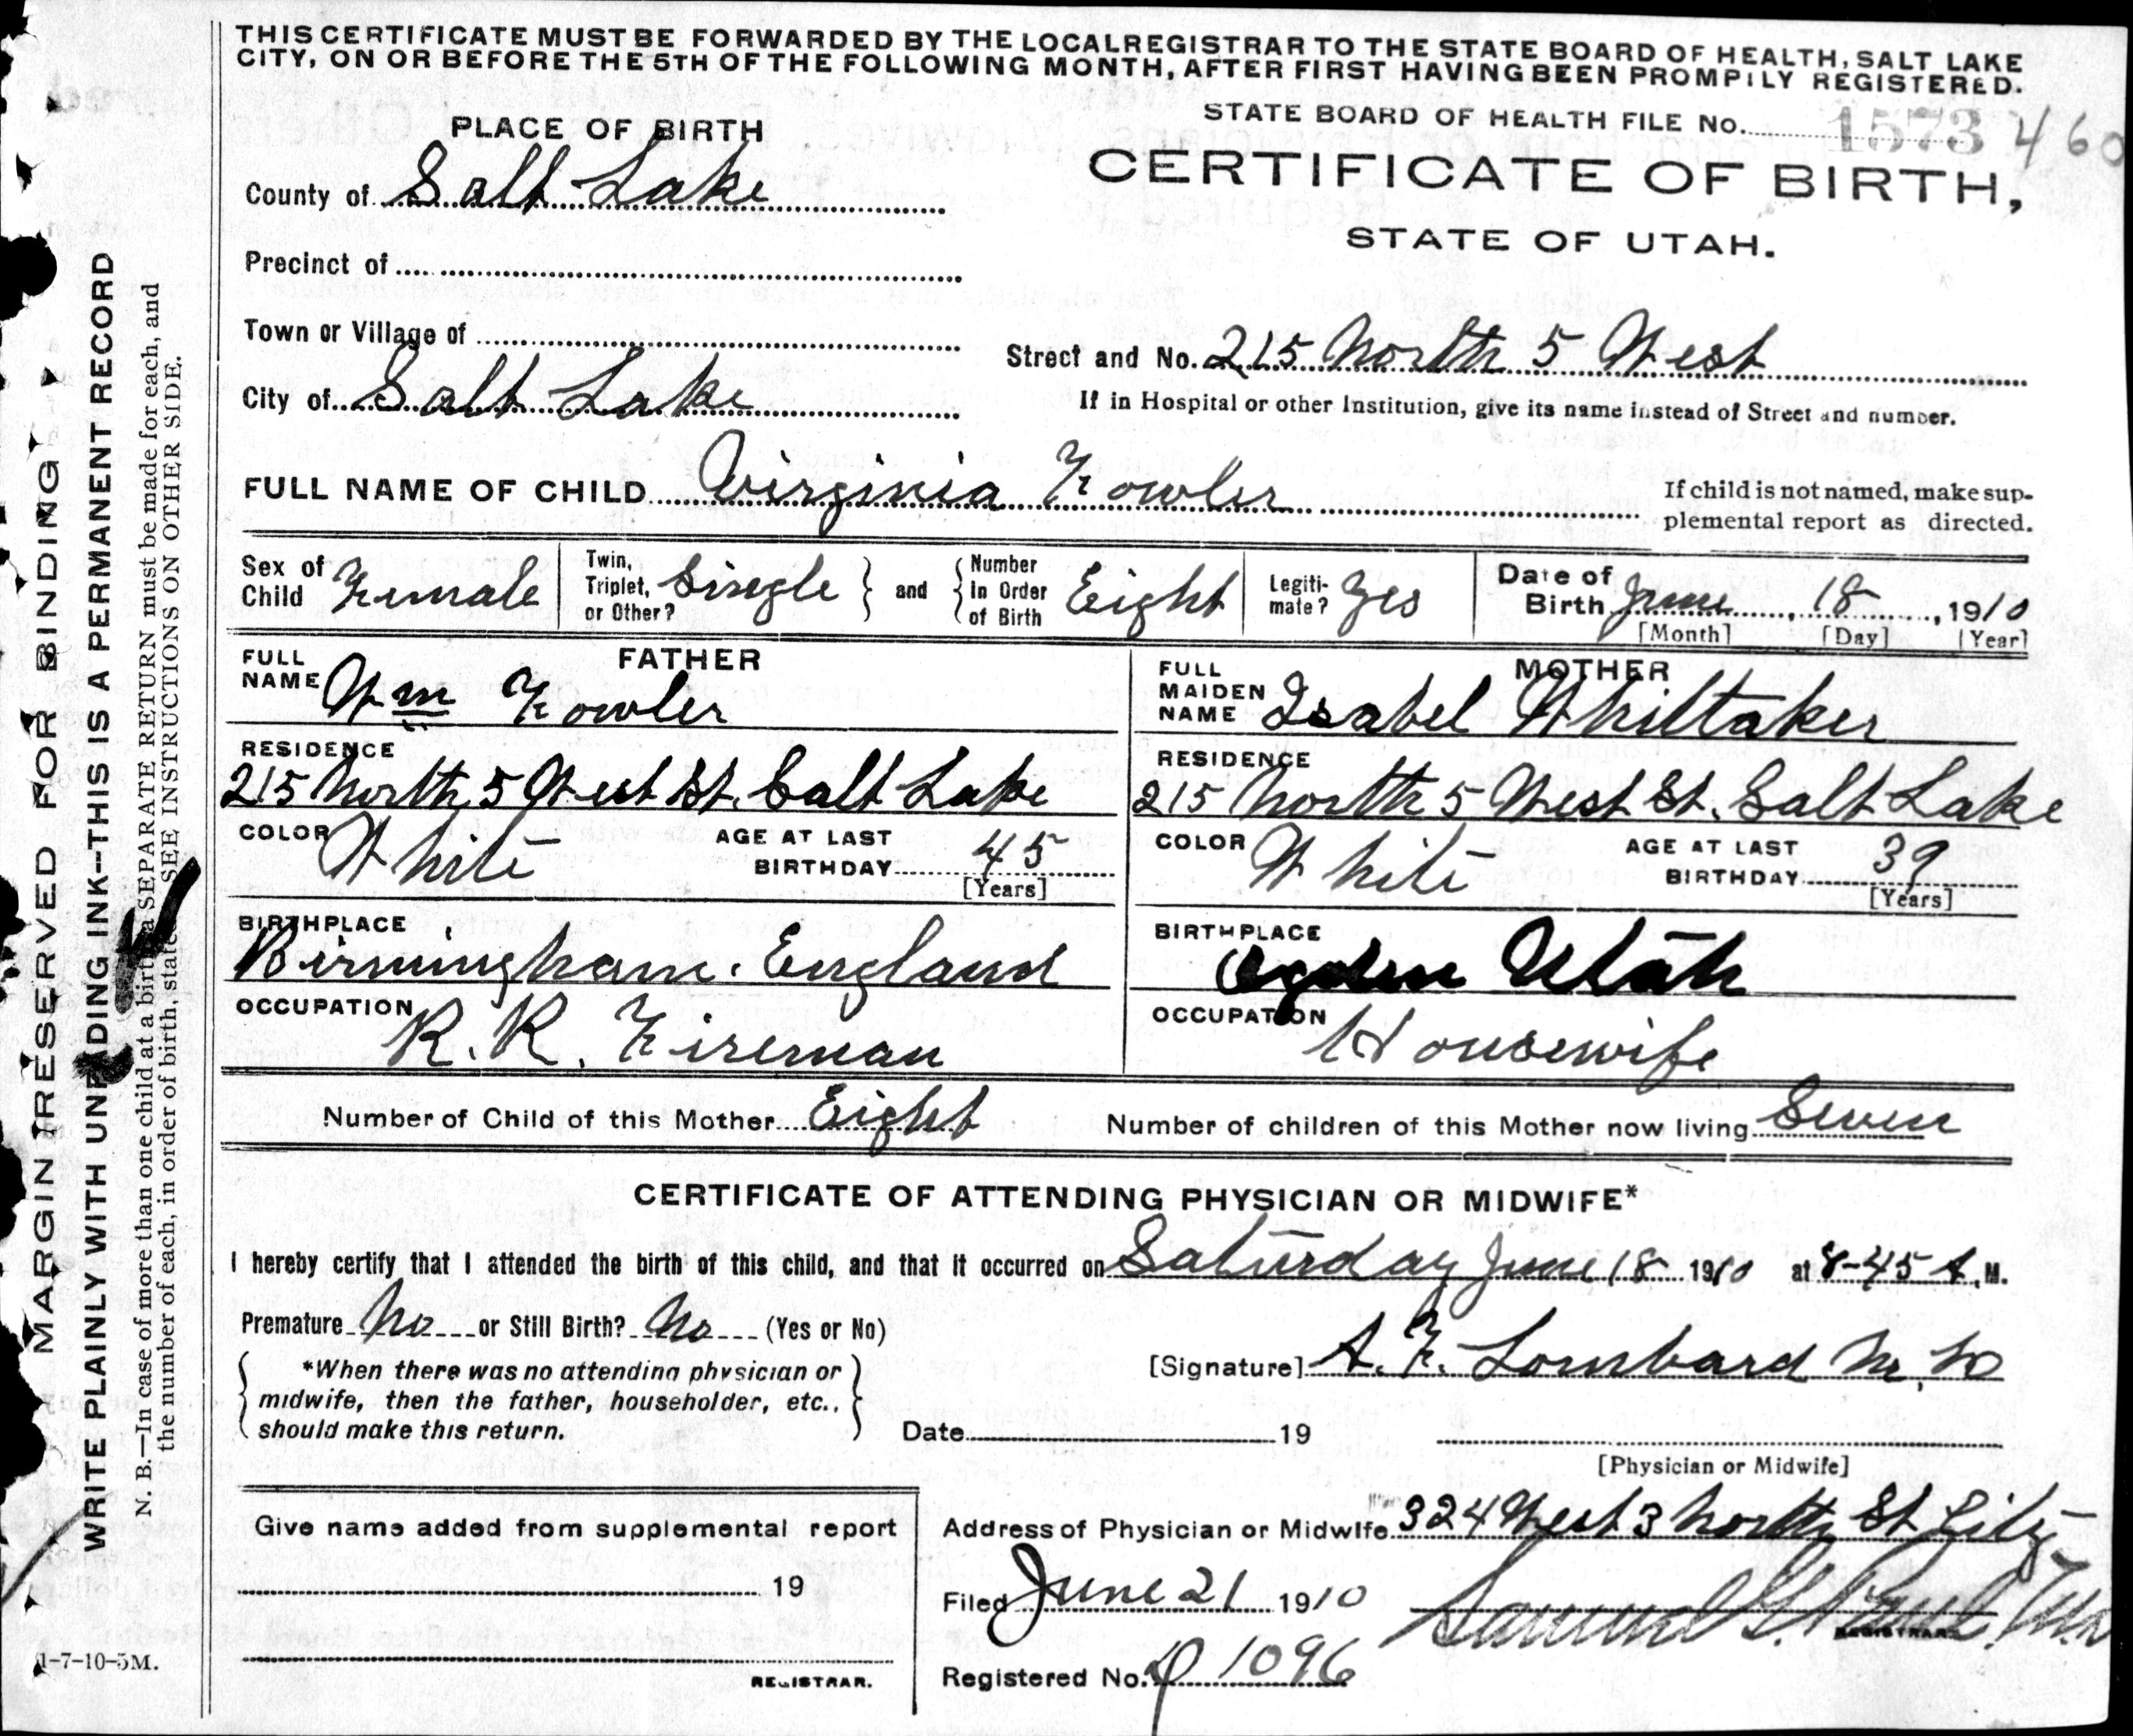 THIS CERTIFICATE MUST BE FORWARDED BY THE LOCAL REGISTRAR TO THE STATE BOARD OF HEALTH, SALT LAKE
CITY, ON OR BEFORE THE 5TH OF THE FOLLOWING MONTH, AFTER FIRST HAVING BEEN PROMPTLY REGISTERED.
STATE BOARD OF HEALTH FILE No. 1573 460
PLACE OF BIRTH
CERTIFICATE OF BIRTH,
STATE OF UTAH.
County of Salt Lake
Precinct of
Town or Village of
Street and No. 215 North 5 West
City of Salt Lake
If in Hospital or other Institution, give its name instead of Street and number.
FULL NAME OF CHILD Virginia Fowler
If child is not named, make sup-
plemental report as directed.
Sex of Child Female
Twin, Triplet, or Other? Single } and { Number In Order of Birth Eight
Legiti-mate? Yes
Date of Birth June, 18, 1910
[Month] [Day] [Year]
FATHER
FULL NAME Wm Fowler
RESIDENCE
215 North 5 West St. Salt Lake
COLOR White AGE AT LAST BIRTHDAY 45
[Years]
BIRTHPLACE
Birmingham. England
OCCUPATION R. R. Fireman
MOTHER
FULL MAIDEN NAME Isabel Whittaker
RESIDENCE
215 North 5 West St. Salt Lake
COLOR White AGE AT LAST BIRTHDAY 39
[Years]
BIRTHPLACE
Ogden Utah
OCCUPATION
Housewife
Number of Child of this Mother Eight Number of children of this Mother now living Seven
CERTIFICATE OF ATTENDING PHYSICIAN OR MIDWIFE*
I hereby certify that I attended the birth of this child, and that it occurred on Saturday June 18 1910 at 8-45 A. M.
Premature No or Still Birth? No (Yes or No)
*When there was no attending physician or
midwife, then the father, householder, etc.,
should make this return.
[Signature] A. F. Lombard M. D
Date 19
[Physician or Midwife]
Give name added from supplemental report
19
REGISTRAR.
Address of Physician or Midwife 324 West 3 North St City
Filed June 21 1910
Samuel G. Paul
REGISTRAR
Registered No. 1096
MARGIN RESERVED FOR BINDING
WRITE PLAINLY WITH UNFADING INK--THIS IS A PERMANENT RECORD
N. B.—In case of more than one child at a birth, a SEPARATE RETURN must be made for each, and
the number of each, in order of birth, stated. SEE INSTRUCTIONS ON OTHER SIDE.
1-7-10-5M.